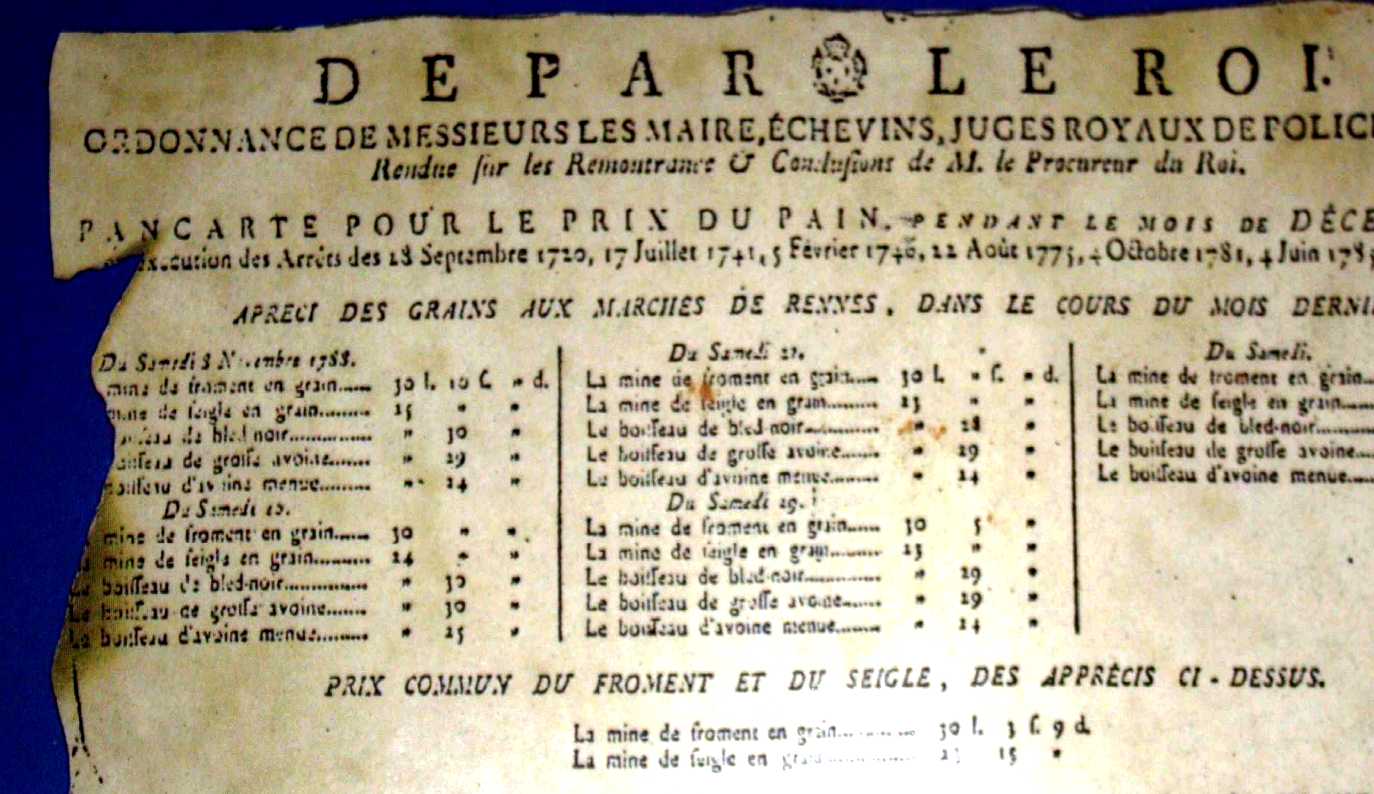 DE PAR LE ROI.
ORDONNANCE DE MESSIEURS LES MAIRE, ÉCHEVINS, JUGES ROYAUX DE POLIC
Rendue ſur les Remontrance & Concluſions de M. le Procureur du Roi.
PANCARTE POUR LE PRIX DU PAIN, PENDANT LE MOIS DE DÉCE
exécution des Arrêts des 28 Septembre 1720, 17 Juillet 1741, 5 Février 1746, 22 Août 1775, 4 Octobre 1781, 4 Juin 178
APRECI DES GRAINS AUX MARCHÉS DE RENNES, DANS LE COURS DU MOIS DERNI
Du Samedi 8 Novembre 1788.
mine de froment en grain...... 30 l. 10 ſ. » d.
mine de ſeigle en grain......... 15 » »
de bled-noir............... » 30 »
boiſſeau de groſſe avoine........ » 29 »
boiſſeau d'avoine menue.......... » 24 »
Du Samedi 15.
mine de froment en grain...... 30 » »
mine de ſeigle en grain.......... 14 » »
Le boiſſeau de bled-noir............... » 30 »
Le boiſſeau de groſſe avoine........ » 30 »
Le boiſſeau d'avoine menue.......... » 25 »
Du Samedi 22.
La mine de froment en grain..... 30 l. » ſ. » d.
La mine de ſeigle en grain.......... 13 » »
Le boiſſeau de bled-noir............... » 28 »
Le boiſſeau de groſſe avoine....... » 29 »
Le boiſſeau d'avoine menue......... » 24 »
Du Samedi 29.
La mine de froment en grain...... 30 5 »
La mine de ſeigle en grain......... 13 » »
Le boiſſeau de bled-noir............... » 29 »
Le boiſſeau de groſſe avoine....... » 29 »
Le boiſſeau d'avoine menue......... » 24 »
Du Samedi.
La mine de froment en grain..
La mine de ſeigle en grain.....
Le boiſſeau de bled-noir..........
Le boiſſeau de groſſe avoine....
Le boiſſeau d'avoine menue.....
PRIX COMMUN DU FROMENT ET DU SEIGLE, DES APPRÉCIS CI-DESSUS.
La mine de froment en grain............ 30 l. 3 ſ. 9 d.
La mine de ſeigle en grain............... 13 15 »